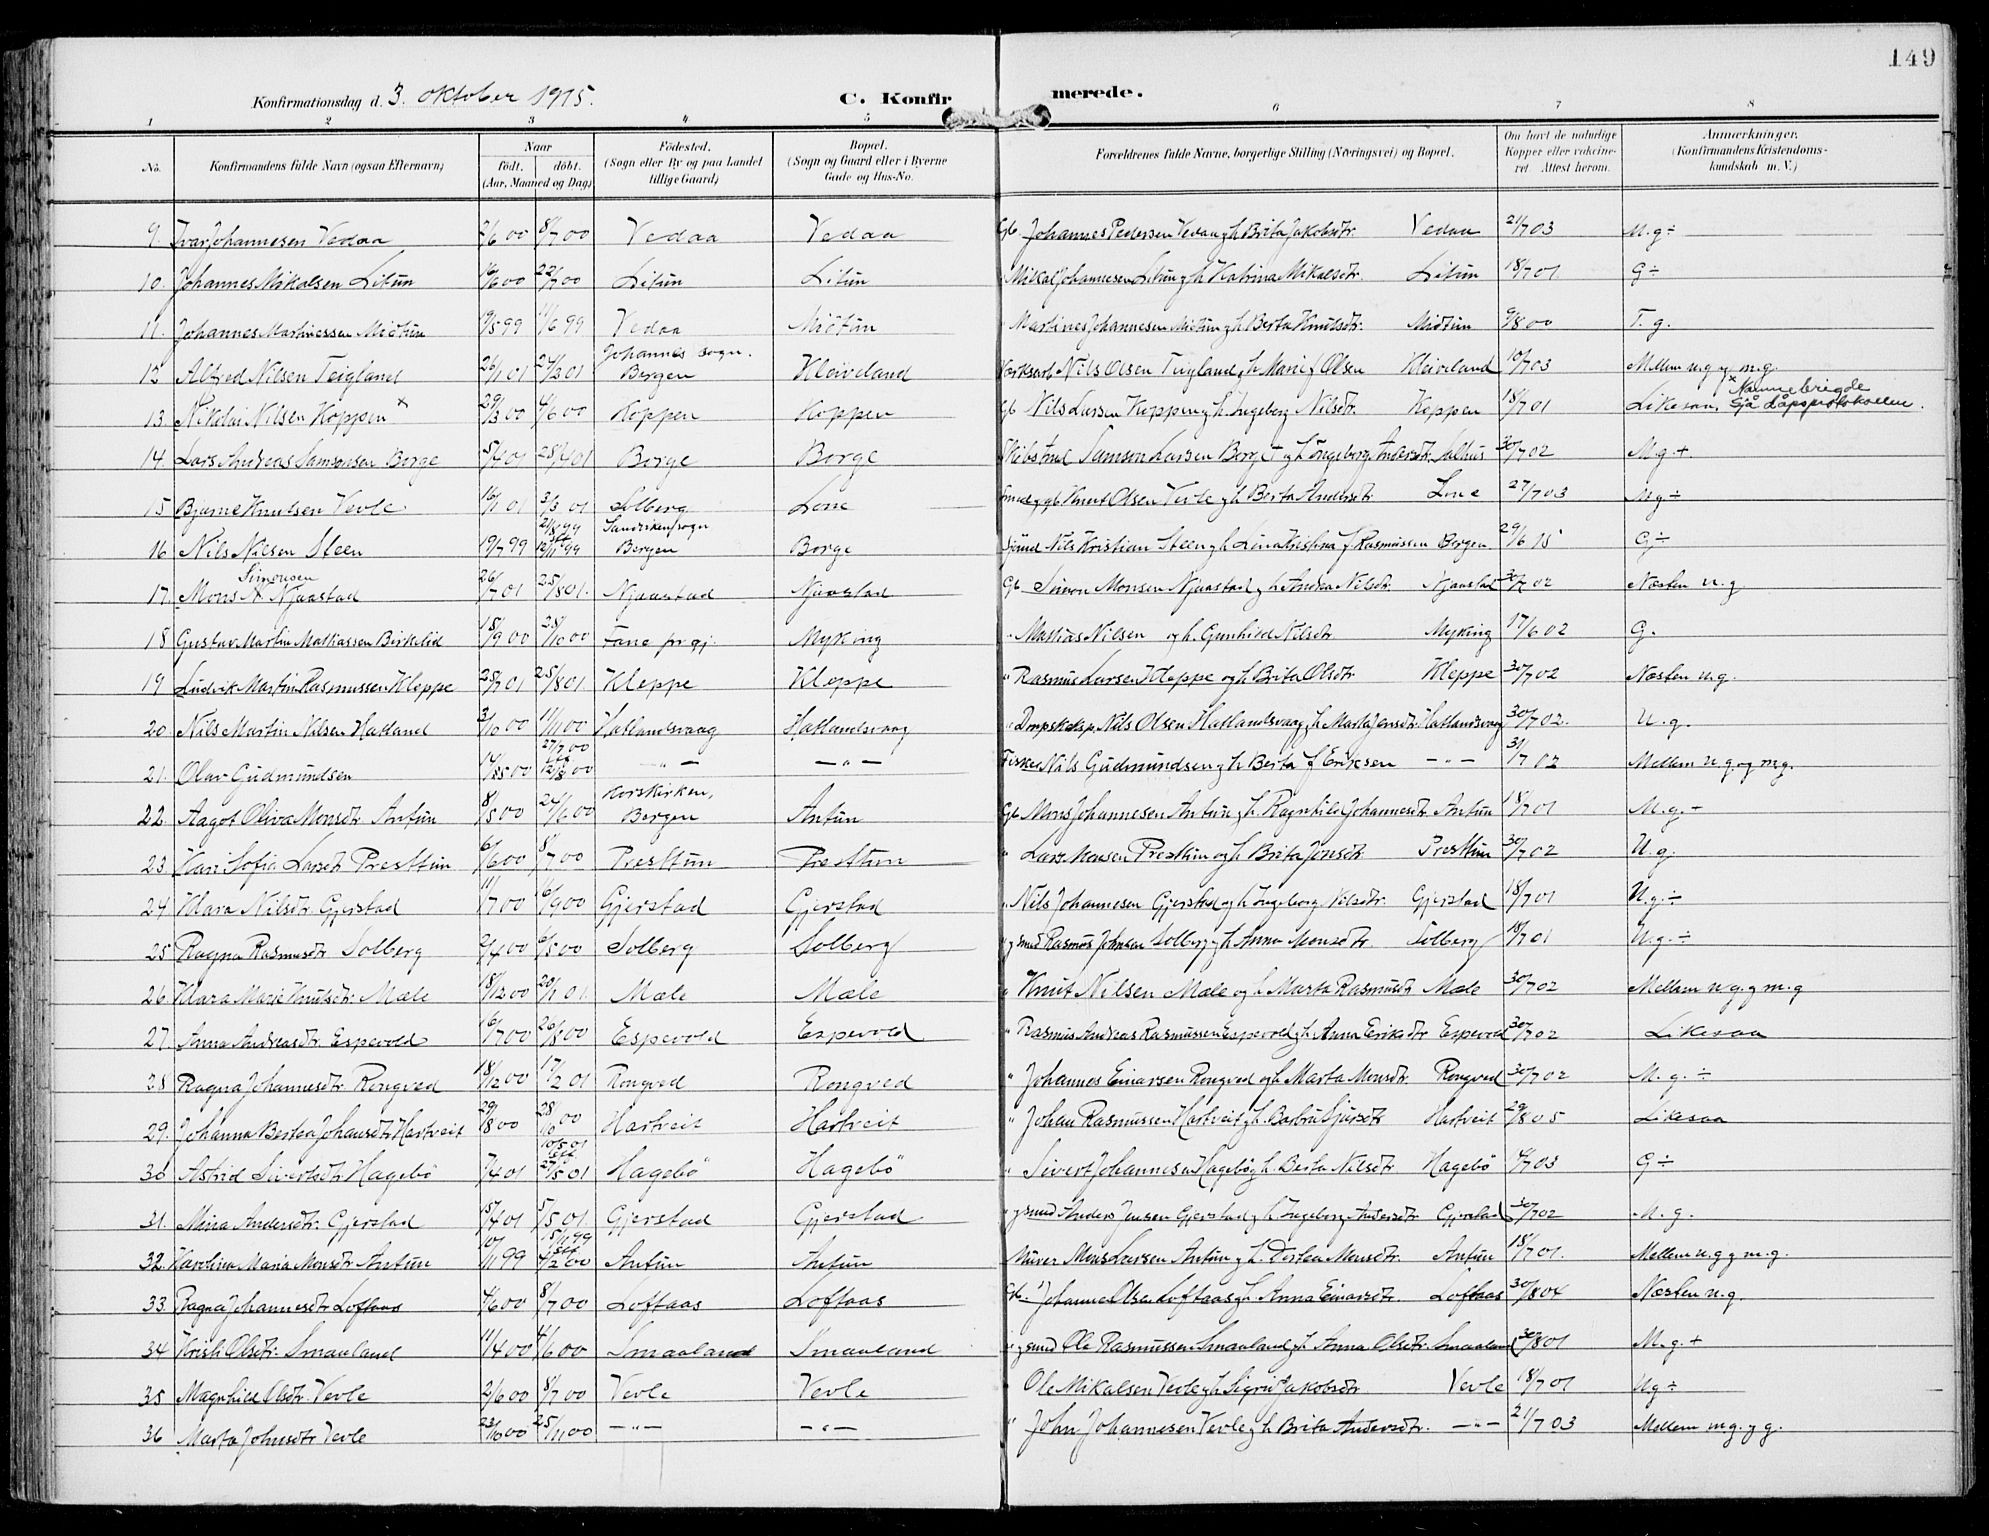 149
Konfirmationsdag d. 3. oktober 1915.
C. Konfirmerede.
1 2 3 4 5 6 7 8
No. Konfirmandens fulde Navn (ogsaa Efternavn) Naar födt. döbt. (Aar, Maaned og Dag) Födested. (Sogn eller By og paa Landet tillige Gaard) Bopæl. (Sogn og Gaard eller i Byerne Gade og Hus-No. Forældrenes fulde Navne, borgerlige Stilling (Næringsvei) og Bopæl. Om havt de naturlige Kopper eller vakcineret Attest herom. Anmærkninger. (Konfirmandens Kristendomskundskab m. V.)
9. Ivar Johannesen Vedaa 2/6 00 8/7 00 Vedaa Vedaa Gb. Johannes Pedersen Vedaa og h Brita Jakobsdtr. Vedaa 21/7 03 M.g÷
10. Johannes Mikalsen Litun 16/6 00 22/7 00 Litun Litun " Mikal Johannesen Litun og h Katrina Mikalsdtr. Litun 18/7 01 G÷
11. Johannes Martinessen Midtun 19/5 99 11/6 99 Vedaa Midtun " Martines Johannesen Midtun og h Berta Knutsdtr. Midtun 9/8 00 T. g.
12 Alfred Nilsen Teigland 26/1 01 24/3 01 Johannes sogn. Bergen Kleiveland Nils Olsen Teigland og h Marie f Olsen Kleiveland 10/7 03 Mellem m.g og m.g.
13. Nikolai Nilsen Koppen x 29/3 00 4/6 00 Koppen Koppen Gb Nils Larsen Koppen og h Ingeborg Nilsdtr. Koppen 18/7 01 Likesaa. x Namnebrigde Sjå dåpsprotokollen.
14. Lars Andreas Samsonsen Borge 5/4 01 28/4 01 Borge Borge Samson Larsen Borge + og h Ingeborg Andersdtr. Salhus 30/7 02 M.g +
15 Bjarne Knutsen Vevle. 16/1 01 3/3 01 Solberg Lone Smed og gb Knut Olsen Vevle og h Berta Andersdtr Lone 27/7 03 Mg÷
16 Nils Nilsen Steen 19/7 99 21/8 99 12/11 99 Sandvikens sogn Bergen Borge Nils Kristian Steen og h Lina Kristina f Rasmussen Bergen 29/6 15 G÷
17. Mons Simonsen Njaastad 26/7 01 25/8 01. Njaastad Njaastad Gb. Simon Monsen Njaastad og h Andrea Nilsdtr. Njaastad 30/7 02 Næsten m.g
18 Gustav Martin Matiassen Birkelid 18/9 00 28/10 00 Fane pr.gj. Myking " Matias Nilsen og h. Gunhild Nilsdtr Myking 17/6 02 G.
19 Ludvik Martin Rasmussen Kleppe 25/7 01 25/8 01 Kleppe Kleppe " Rasmus Larsen Kleppe og h Brita Olsdtr Kleppe 30/7 02 Næsten m.g.
20 Nils Martin Nilsen Hatland 3/10 00 11/11 00 Hatlandsvaag Hatlandsvaag Nils Olsen Hatlandsvaag og h. Marta Jensdtr. Hatlandsvaag 30/7 02. M.g.
21. Olav Gudmundsen 14/5 00 27/7 00 12/8 00 — " — — " — Fisker Nils Gudmundsen og h Berta f Eriksen — " — 31/7 02 Mellem m.g. og m.g.
22. Aagot Oliva Monsdtr Antun 8/5 00 24/6 00 Korskirken, Bergen Antun Gb Mons Johannesen Antun og h. Ragnhild Johannesdtr Antun 18/7 01 M.g.÷
23. Kari Sofia Larsdtr Presttun 6/6 00 8/7 00 Presttun Presttun " Lars Monsen Presttun og h Brita Jonsdtr Presttun 30/7 02 M.g.
24. Klara Nilsdtr. Gjerstad 11/7 00 16/9 00 Gjerstad Gjerstad " Nils Johannesen Gjerstad og h Ingeborg Nilsdtr. Gjerstad 18/7 01 M.g.÷
25 Ragna Rasmusdtr Solberg 2/4 00 6/5 00 Solberg Solberg " og smed Rasmus Johnsen Solberg og h Anna Monsdtr. Solberg 18/7 01 M.g.÷
26. Klara Marie Knutsdtr. Mæle 18/12 00 20/1 01. Mæle Mæle " Knut Nilsen Mæle og h Marta Rasmusdtr Mæle 30/7 02 Mellem m.g. og m.g
27. Anna Andreasdtr. Espevold 16/7 00 26/8 00 Espevold Espevold " Rasmus Andreas Rasmussen Espevold og h Anna Eriksdtr Espevold 30/7 02 Likesaa
28 Ragna Johannesdtr. Rongved 18/12 00 17/2 01 Rongved Rongved " Johannes Einarsen Rongved og h Marta Monsdtr. Rongved 30/7 02 M. g. ÷
29. Johanna Bertea Johansdtr Hartveit 29/8 00 28/10 00 Hartveit Hartveit " Johan Rasmussen Hartveit og h. Barbra Sjursdtr Hartveit 29/8 05 Likesaa
30 Astrid Sivertsdtr Hagebö 7/4 01 10/5 01 27/5 01 Hagebö Hagebö " Sivert Johannesen Hagebö og h. Berta Nilsdtr Hagebö 4/7 03 G÷
31. Mina Andersdtr. Gjerstad 15/4 01 5/5 01. Gjerstad Gjerstad " og smed Anders Jensen Gjerstad og h Ingeborg Andersdtr Gjerstad 30/7 02 M. g.
32. Karolina Maria Monsdtr Antun 10/11 99 15/11 99 4/2 00 Antun Antun Murer Mons Larsen Antun og h. Dortea Monsdtr. Antun 18/7 01. Mellem m.g og m.g.
33. Ragna Johannesdtr Loftaas 4/6 00 8/7 00 Loftaas Loftaas Gb. Johannes Olsen Loftaas og h Anna Einarsdtr. Loftaas 30/8 04 Næsten m.g.
34 Kristi Olsdtr. Smaaland 11/4 00 4/6 00 Smaaland Smaaland " og smed Ole Rasmussen Smaaland og h Anna Olsdtr Smaaland 30/8 01 M.g.+
35 Magnhild Olsdtr. Vevle 2/6 00 8/7 00 Vevle Vevle Ole Mikalsen Vevle og h Sigrid Jakobsdtr Vevle 18/7 01 Mg÷
36 Marta Johnsdtr Vevle 23/10 00 25/11 00 — " — — " — " John Johannesen Vevle og h Brita Andersdtr. — " — 21/7 03 Mellem m.g. og g.